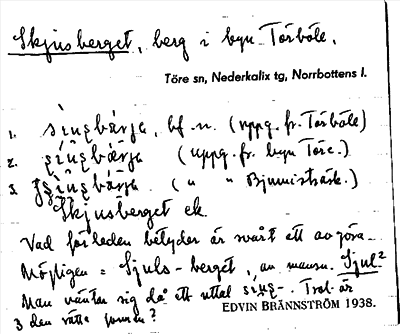 Skjusberget, berg i byn Törböle.
Töre sn, Nederkalix tg, Norrbottens l.
1. bf. n. (uppg. fr. Törböle)
2. (uppg. fr. byn Töre.)
3. ( " " Bjumisträsk.)
Skjusberget ek.
Vad förleden betyder är svårt att avgöra.
Möjligen = Sjuls-berget, av mansn. Sjul?
Man väntar sig då ett uttal Trol. är
3 den rätta formen?
EDVIN BRÄNNSTRÖM 1938.